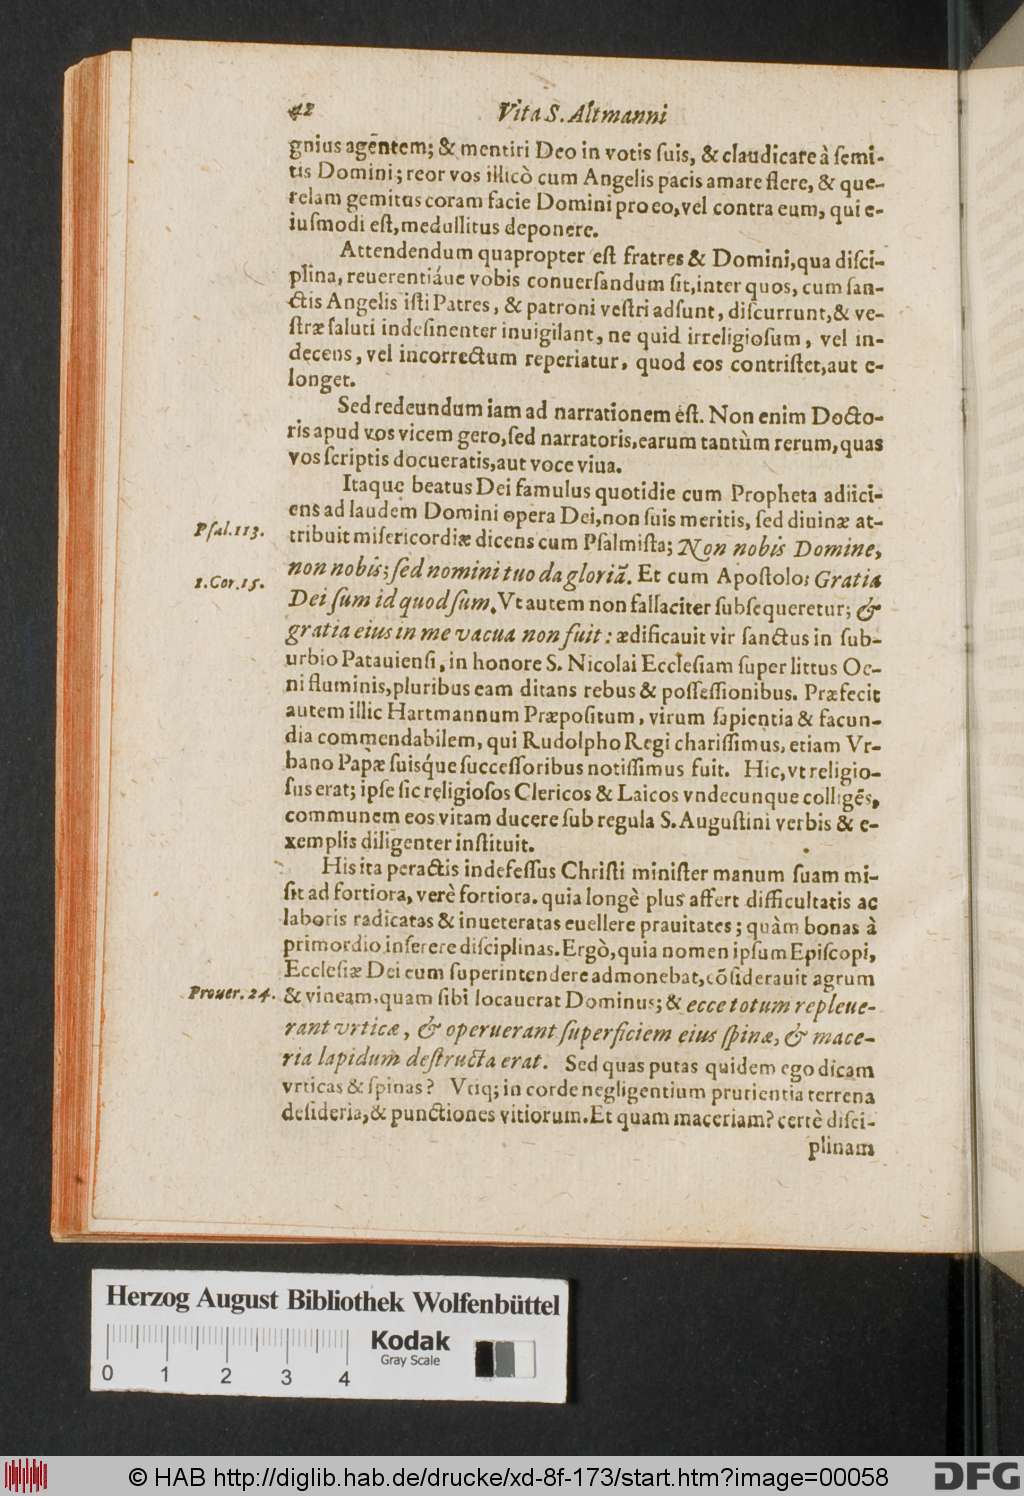 42
Vita S. Altmanni
gnius agẽntem; & mentiri Deo in votis ſuis, & claudicare à ſemi-
tis Domini; reor vos illicò cum Angelis pacis amare flere, & que-
relam gemitus coram facie Domini pro eo, vel contra eum, qui e-
iuſmodi eſt, medullitus deponere.
Attendendum quapropter eſt fratres & Domini, qua diſci-
plina, reuerentiáue vobis conuerſandum ſit, inter quos, cum ſan-
ctis Angelis iſti Patres, & patroni veſtri adſunt, diſcurrunt, & ve-
ſtræ ſaluti indeſinenter inuigilant, ne quid irreligioſum, vel in-
decens, vel incorrectum reperiatur, quod eos contriſtet, aut e-
longet.
Sed redeundum iam ad narrationem eſt. Non enim Docto-
ris apud vos vicem gero, ſed narratoris, earum tantùm rerum, quas
vos ſcriptis docueratis, aut voce viua.
Itaque beatus Dei famulus quotidie cum Propheta adiici-
ens ad laudem Domini opera Dei, non ſuis meritis, ſed diuinæ at-
Pſal. 113.
tribuit miſericordiæ dicens cum Pſalmiſta; Non nobis Domine,
non nobis; ſed nomini tuo da gloriã. Et cum Apoſtolo: Gratia
1. Cor. 15.
Dei ſum id quod ſum. Vt autem non fallaciter ſubſequeretur; &
gratia eius in me vacua non fuit: ædificauit vir ſanctus in ſub-
urbio Patauienſi, in honore S. Nicolai Eccleſiam ſuper littus Oe-
ni fluminis, pluribus eam ditans rebus & poſſeſſionibus. Præfecit
autem illic Hartmannum Præpoſitum, virum ſapientia & facun-
dia commendabilem, qui Rudolpho Regi chariſſimus, etiam Vr-
bano Papæ ſuisq́ue ſucceſſoribus notiſſimus fuit. Hic, vt religio-
ſus erat; ipſe ſic religioſos Clericos & Laicos vndecunque colligẽs,
communem eos vitam ducere ſub regula S. Auguſtini verbis & e-
xemplis diligenter inſtituit.
His ita peractis indefeſſus Chriſti miniſter manum ſuam mi-
ſit ad fortiora, verè fortiora. quia longè plus affert difficultatis ac
laboris radicatas & inueteratas euellere prauitates; quàm bonas à
primordio inſerere diſciplinas. Ergò, quia nomen ipſum Epiſcopi,
Eccleſiæ Dei eum ſuperintendere admonebat, cõſiderauit agrum
Prouer. 24.
& vineam, quam ſibi locauerat Dominus; & ecce totum repleue-
rant vrticæ, & operuerant ſuperficiem eius ſpinæ, & mace-
ria lapidum deſtructa erat. Sed quas putas quidem ego dicam
vrticas & ſpinas? Vtiq; in corde negligentium prurientia terrena
deſideria, & punctiones vitiorum. Et quam maceriam? certè diſci-
plinam
Herzog August Bibliothek Wolfenbüttel
Kodak
Gray Scale
0 1 2 3 4
© HAB http://diglib.hab.de/drucke/xd-8f-173/start.htm?image=00058
DFG